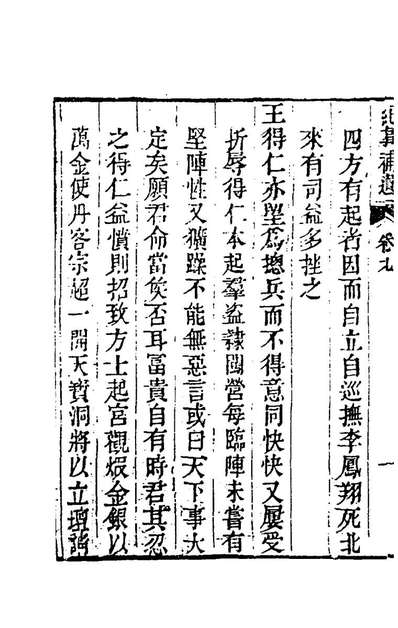 紀事補遺 卷九 一
四方有起者因而自立自巡撫李鳳翔死北
來有司益多挫之
王得仁亦望為摠兵而不得意同快快又屢受
折辱得仁本起羣盗隷闖營每臨陣未嘗有
堅陣性又獷躁不能無惡言或曰天下事大
定矣願君命當矦否耳冨貴自有時君其忍
之得仁益憤則招致方士起宮觀煆金銀以
萬金使丹客宗超一開天寳洞將以立壇請